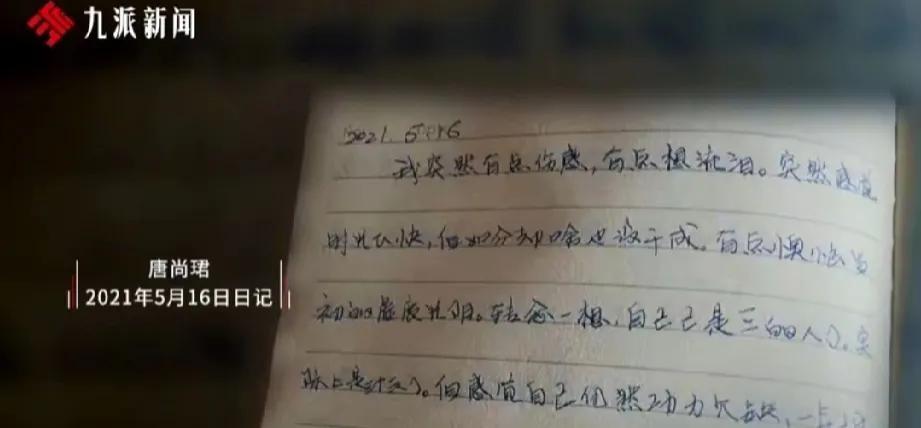 九派新闻
2021.5.16
我突然有点伤感，有点想流泪。突然感觉
时光飞快，但如今却啥也没干成。有点懊悔当
初的虚度光阴。转念一想，自己已是三的人了。实
际上是了。但感觉自己仍然功力欠缺，一
唐尚珺
2021年5月16日日记